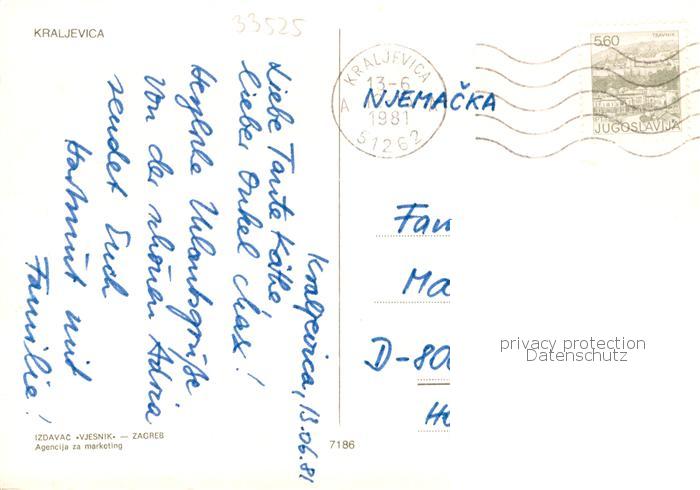 KRALJEVICA
33525
Kraljevica, 13.06.81
Liebe Tante Käthe
lieber Onkel Max!
Herzliche Urlaubsgrüße
von der schönen Adria
sendet Euch
Hartmut mit
Familie!
IZDAVAČ «VJESNIK» — ZAGREB
Agencija za marketing
7186
KRALJEVICA
13-6
A
1981
51262
TRAVNIK
5,60
JUGOSLAVIJA
NJEMAČKA
Fam
Ma
D-80
privacy protection
Datenschutz